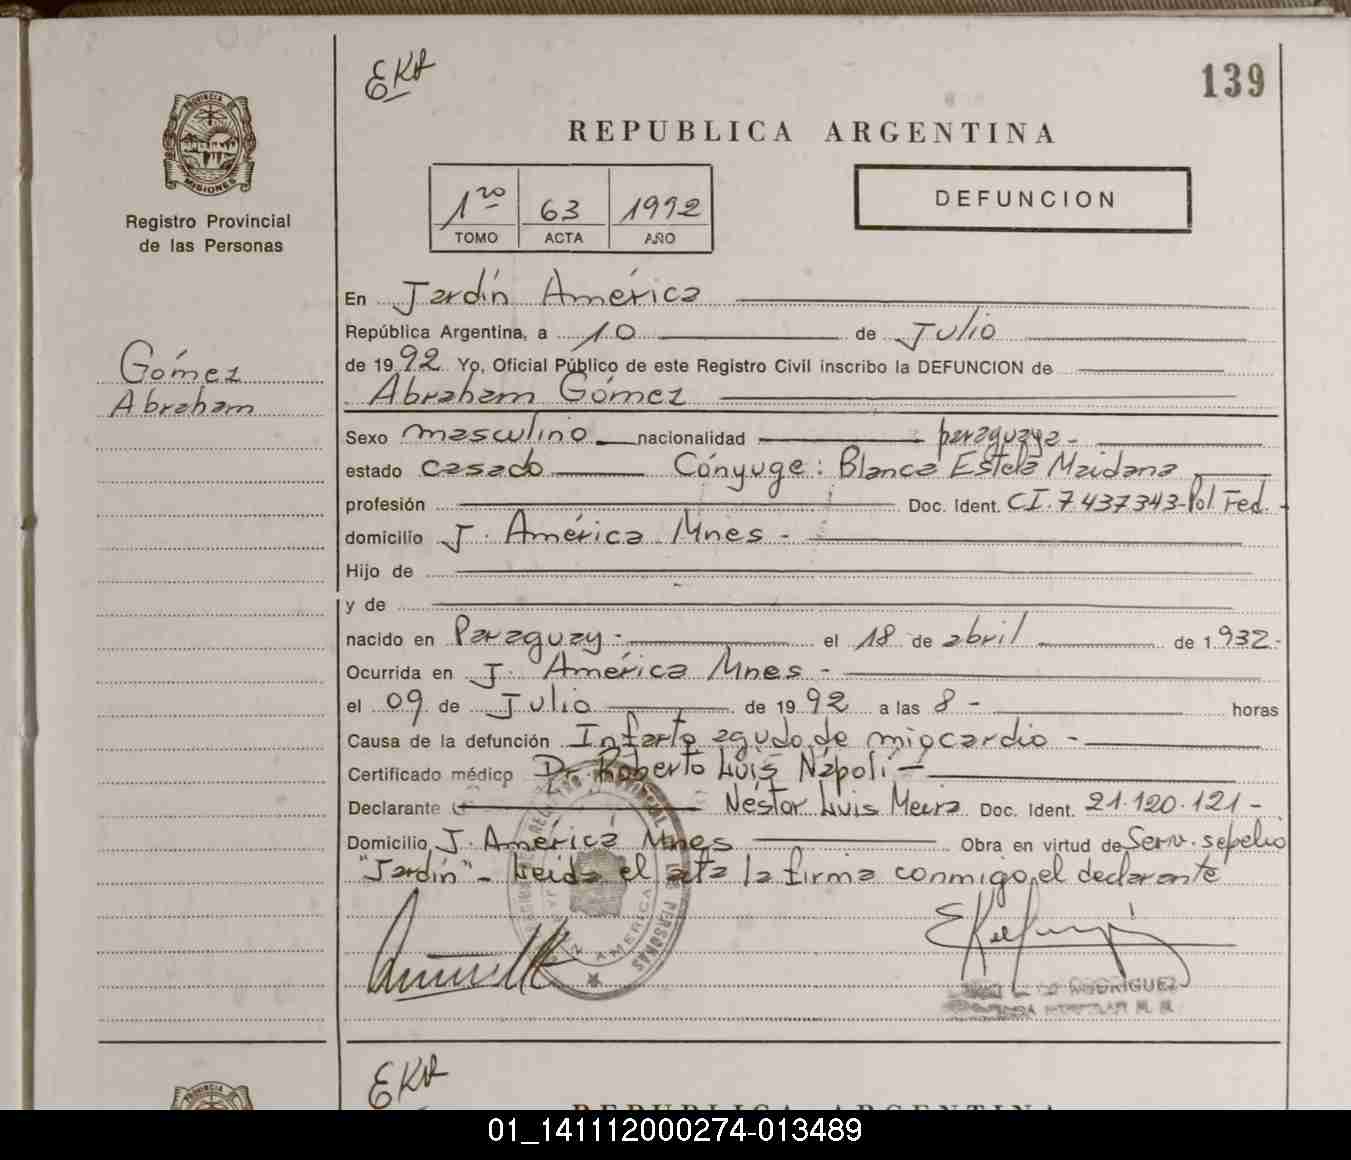 EKA
139
PROVINCIA DE
MISIONES
Registro Provincial
de las Personas
REPUBLICA ARGENTINA
1ro 63 1992
TOMO ACTA AÑO
DEFUNCION
Gómez
Abraham
En Jardín América
República Argentina, a 10 de Julio
de 1992 Yo, Oficial Público de este Registro Civil inscribo la DEFUNCION de
Abraham Gómez
Sexo masculino nacionalidad paraguaya -
estado casado Cónyuge: Blanca Estela Maidana
profesión Doc. Ident. CI. 7437343-Pol Fed. -
domicilio J. América Mnes -
Hijo de
y de
nacido en Paraguay - el 18 de abril de 1.932-
Ocurrida en J. América Mnes -
el 09 de Julio de 1992 a las 8 - horas
Causa de la defunción Infarto agudo de miocardio -
Certificado médico Dr. Roberto Luis Nápoli -
Declarante Néstor Luis Meira Doc. Ident. 21.120.121 -
Domicilio J. América Mnes Obra en virtud de Serv. sepelio
"Jardín" - Leida el acta la firma conmigo, el declarante
AMERICA
PERSONAS
RODRIGUEZ
EKA
PROVINCIA DE
REPUBLICA ARGENTINA
01_141112000274-013489